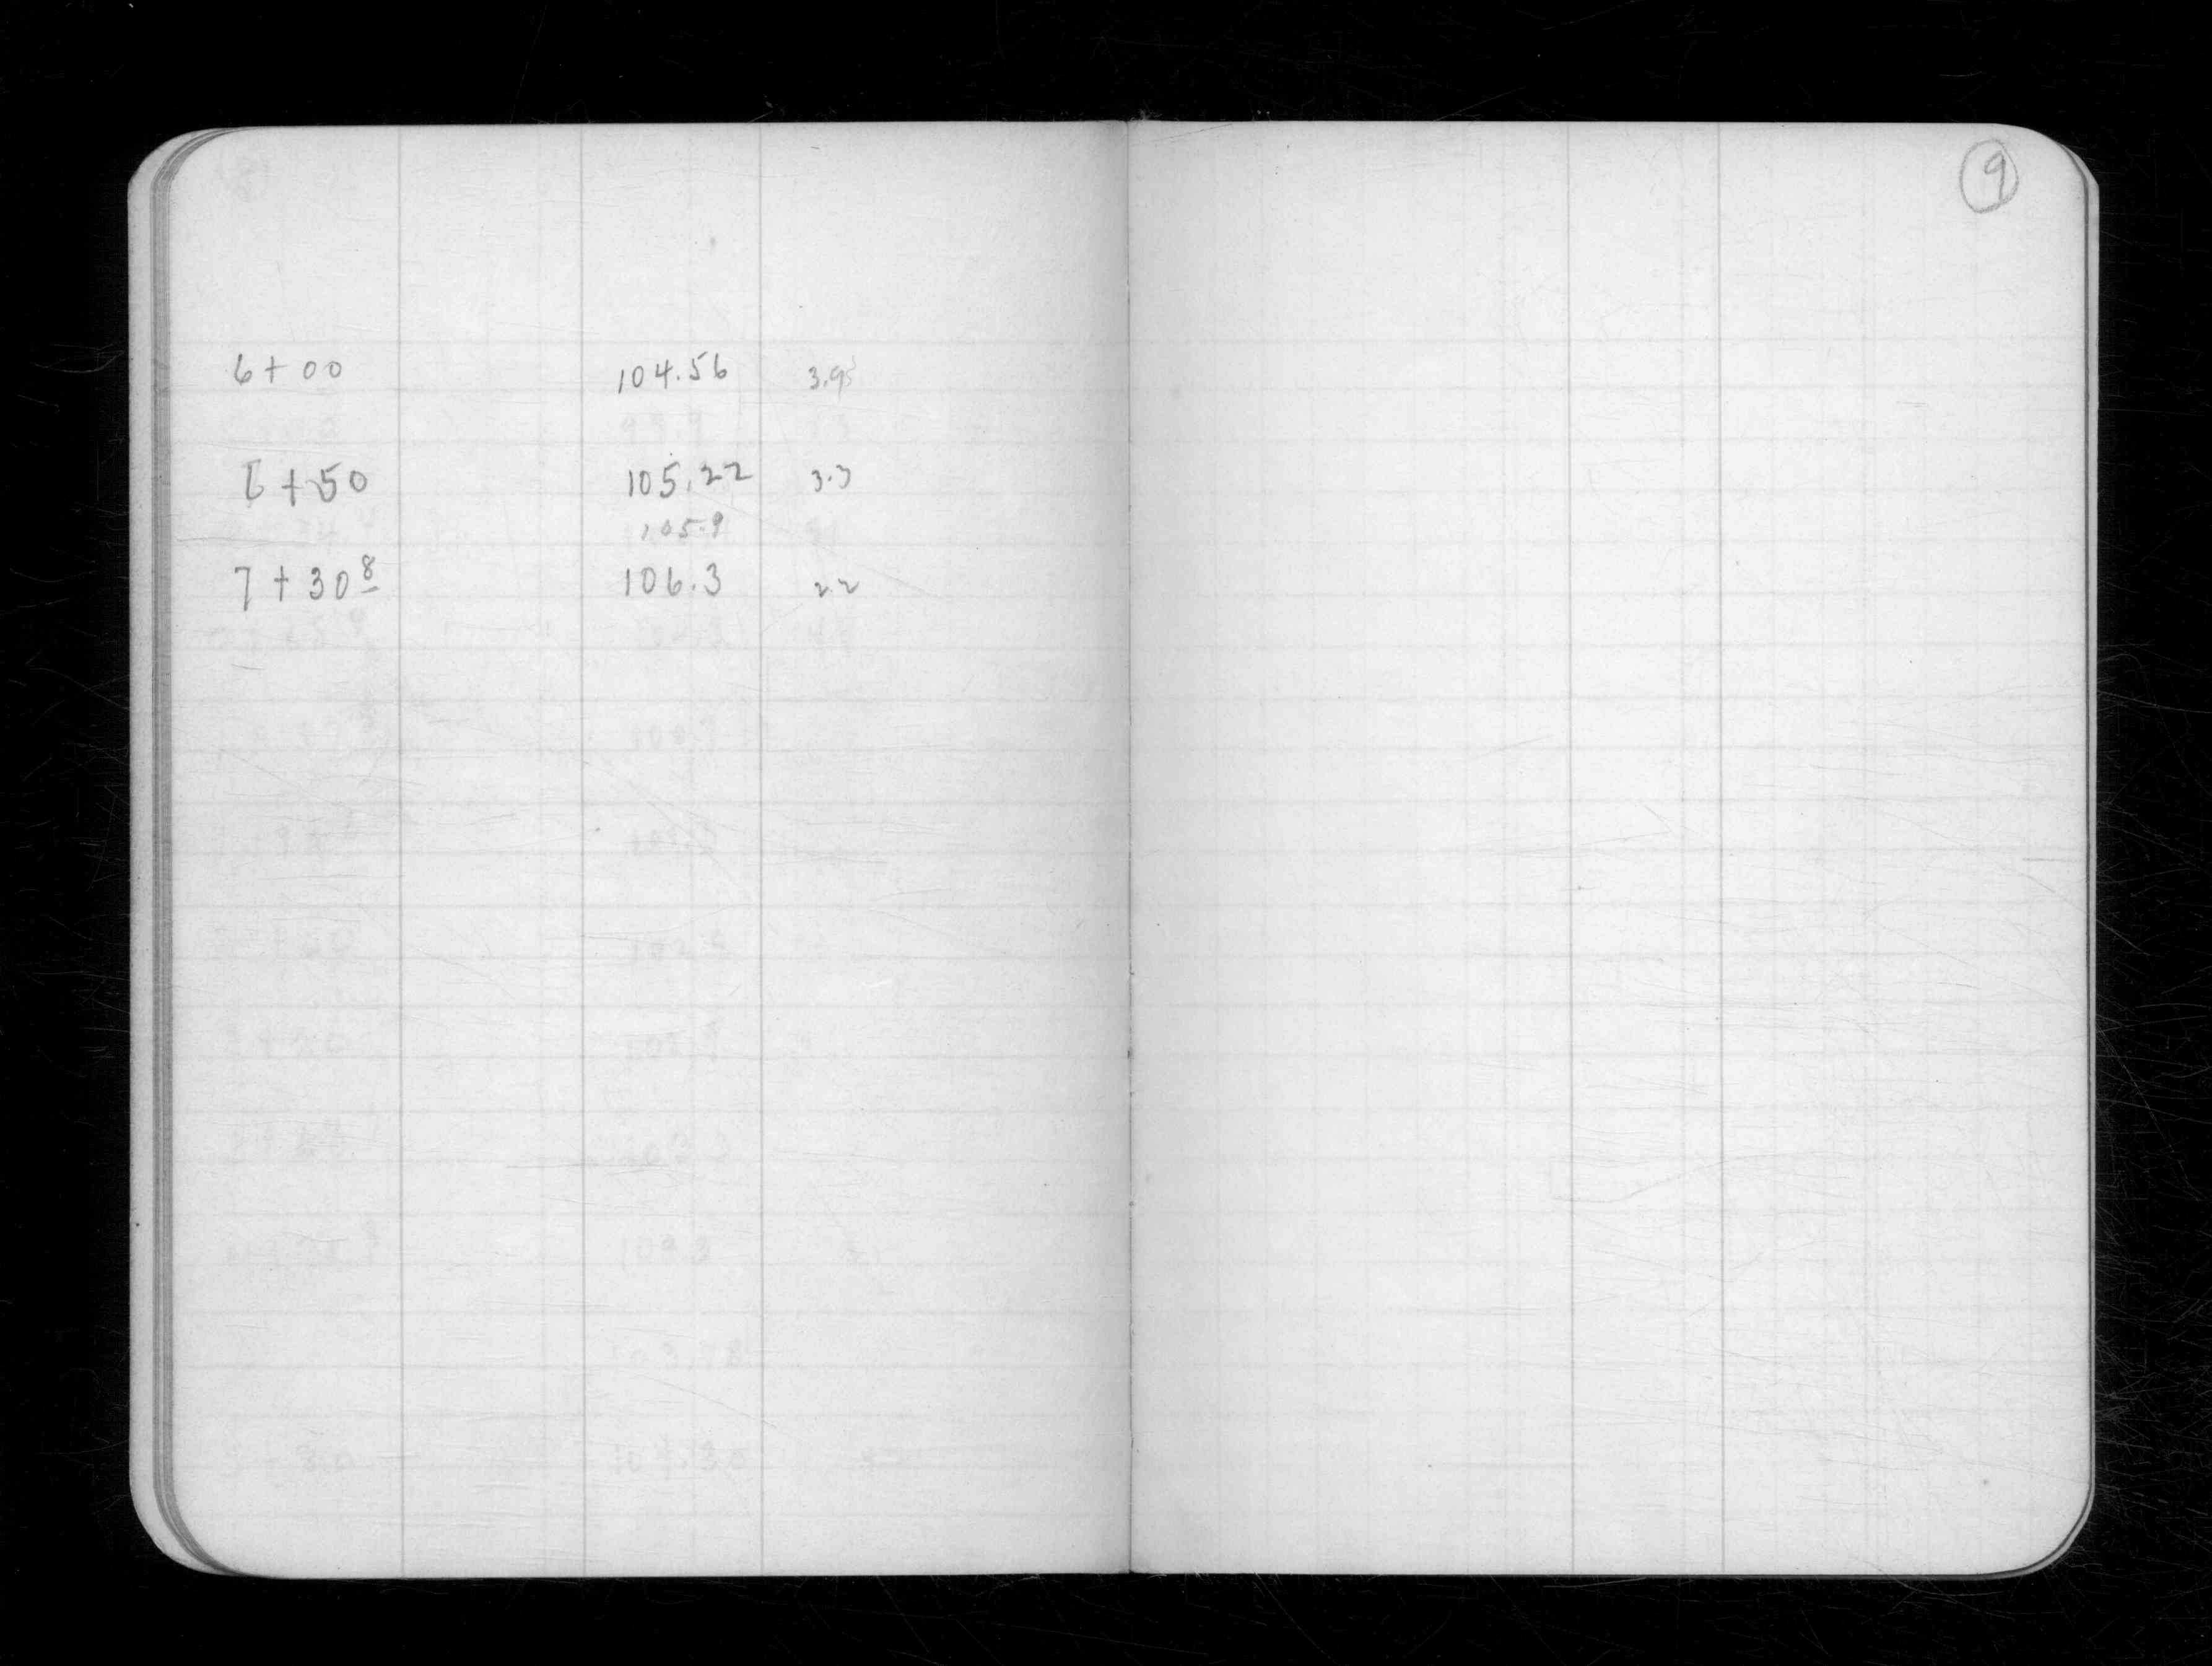 9
6+00 104.56 3.95
6+50 105.22 3.3
105.9
7+30 8 106.3 2.2